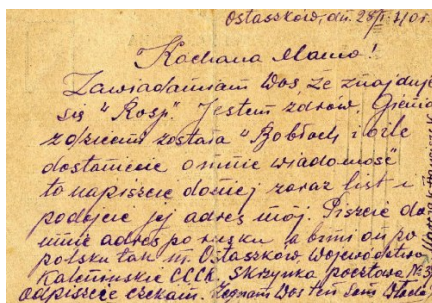 Ostaszków, dn. 28/I. 40 r.
Kochana Mamo!
Zawiadamiam Was, że znajduję
się "Rosji". Jestem zdrów, Gienia
z dziećmi została "Bobłoch i o ile
dostaniecie o mnie wiadomość
to napiszcie do niej zaraz list i
podajcie jej adres mój. Piszcie do
mnie adres po rusku
polsku tak m. Ostaszków, Województwo
Kalenińskie CCCR. Skrzynka pocztowa № 3
odpiszcie czekam. Żegnam Was